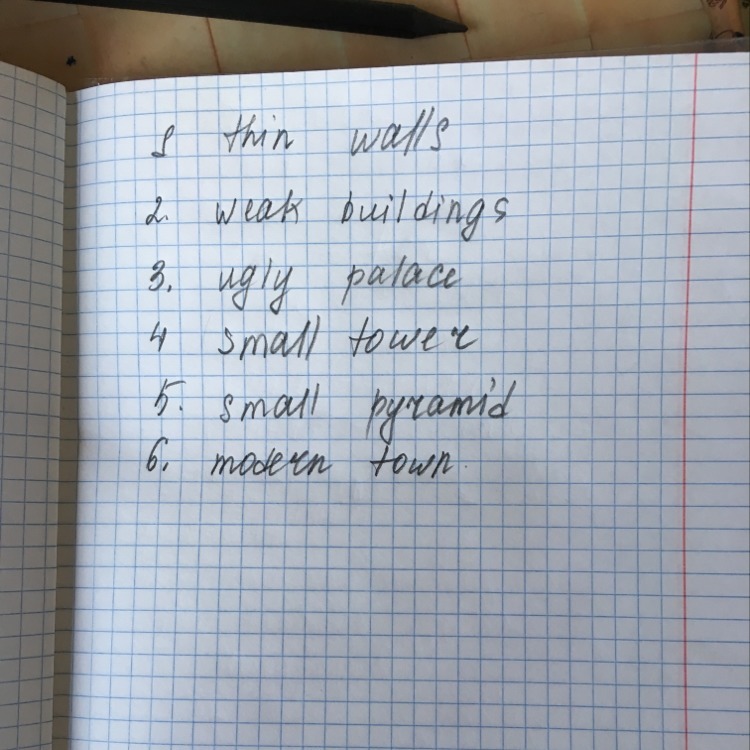 1 thin walls
2. weak buildings
3. ugly palace
4 small tower
5. small pyramid
6. modern town.